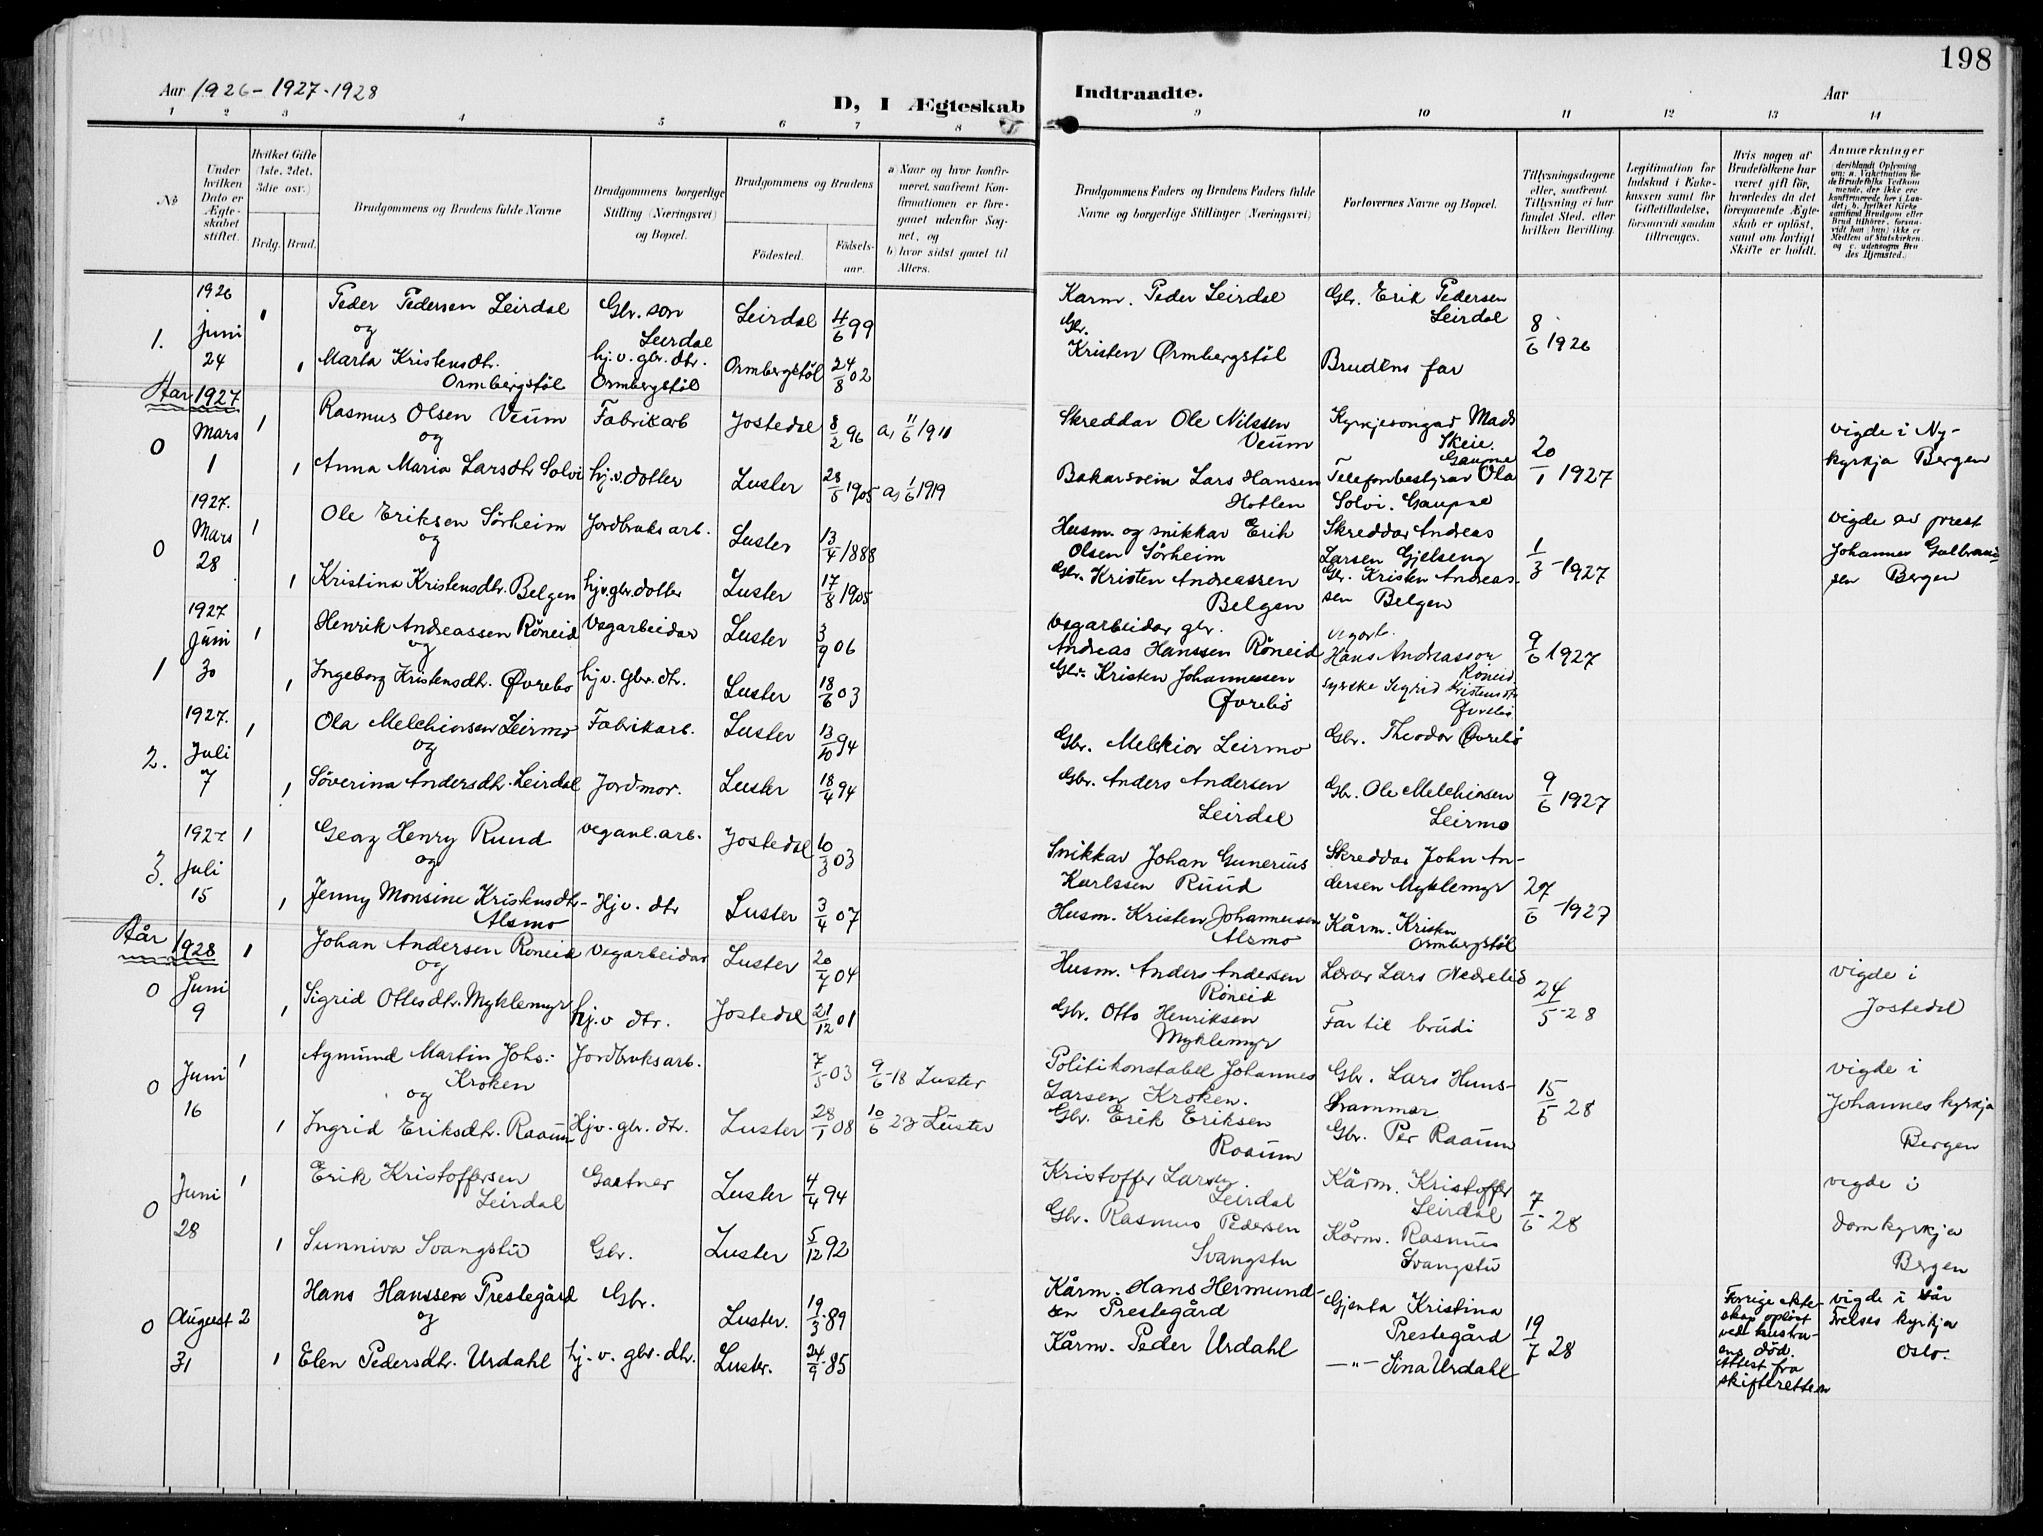 198
Aar 1926-1927-1928
D, I Ægteskab Indtraadte.
Aar
1 2 3 4 5 6 7 8 9 10 11 12 13 14
No
Under hvilken Dato er Ægteskabet stiftet.
Hvilket Gifte (1ste, 2det, 3die osv.)
Brdg. Brud.
Brudgommens og Brudens fulde Navne
Brudgommens borgerlige Stilling (Næringsvei) og Bopæl.
Brudgommens og Brudens
Fødested.
Fødselsaar.
a) Naar og hvor konfirmeret, saafremt Konfirmationen er foregaaet udenfor Sognet, og
b) hvor sidst gaaet til Alters.
Brudgommens Faders og Brudens Faders fulde Navne og borgerlige Stillinger (Næringsvei)
Forlovernes Navne og Bopæl.
Tillysningsdagene eller, saafremt Tillysning ei har fundet Sted, efter hvilken Bevilling.
Legitimation for Indskud i Enkekassen samt for Giftetilladelse, forsaavidt saadan tiltrænges.
Hvis nogen af Brudefolkene har været gift før, hvorledes da det foregaaende Ægteskab er opløst, samt om lovligt Skifte er holdt.
Anmærkninger
1. 1926 juni 24
1 Peder Pedersen Leirdal
og
Gbr. son Leirdal
Leirdal
4/6 99
Karm. Peder Leirdal
Gbr. Erik Pedersen Leirdal
8/6 1926
1 Marta Kristensdtr. Ormbergstøl
hj. v. gbr. dtr. Ormbergstøl
Ormbergstøl
24/8 02
Gbr. Kristen Ormbergstøl
Brudens far
Aar 1927
0 Mars 1
1 Rasmus Olsen Veum
og
Fabrikarb
Jostedal
8/2 96
a, 11/6 1911
Skreddar Ole Nilssen Veum
Kyrkjesongar Mads Skeie. Gaupne
20/1 1927
vigde i Nykyrkja Bergen
1 Anna Maria Larsdtr Solvi
hj. v. dotter
Luster
28/5 1905
a, 1/6 1919
Bakarsvein Lars Hansen Hotlen
Telefonbestyrar Ola Solvi. Gaupne
0 1927. Mars 28
1 Ole Eriksen Sørheim
og
Jordbruksarb.
Luster
13/4 1888
Husm. og snikkar Erik Olsen Sørheim
Skreddar Andreas Larsen Gjelseng
1/3-1927
vigde av prest Johannes Bergen
1 Kristina Kristensdtr. Belgen
hjv. gbr. dotter
Luster
17/8 1905
Gbr. Kristen Andreassen Belgen
Gbr. Kristen Andreassen Belgen
1 1927 Juni 30
1 Henrik Andreassen Røneid
og
Vegarbeidar
Luster
3/9 06
Vegarbeidar gbr. Andreas Hanssen Røneid
Vegarb. Hans Andreasson Røneid
9/6 1927
1 Ingeborg Kristensdtr. Øvrebø
hj v. gbr. dtr.
Luster
18/6 03
Gbr. Kristen Johannessen Øvrebø
syrske Sigrid Kristensdtr Øvrebø
2. 1927. Juli 7
1 Ola Melchiorsen Leirmo
og
Fabrikarb.
Luster
13/10 94
Gbr. Melkior Leirmo
Gbr. Theodor Øvrebø
9/6 1927
1 Søverina Andersdtr. Leirdal
Jordmor.
Luster
18/4 94
Gbr. Anders Andersen Leirdal
Gbr. Ole Melchiorsen Leirmo
3. 1927. Juli 15
1 Georg Henry Ruud
og
veganl. arb.
Jostedal
10/3 03
Snikkar Johan Gunerius Karlssen Ruud
Skreddar John Andersen Myklemyr
27/6-1927
1 Jenny Monsine Kristensdtr- Alsmo
Hjv. dtr
Luster
3/4 07
Husm. Kristen Johannessen Alsmo
Kårm. Kristen Ormbergstøl
Aår 1928
0 Juni 9
1 Johan Andersen Røneid
og
Vegarbeidar
Luster
20/7 04
Husm. Anders Andersen Røneid
Lærar Lars Nedrelid
24/5-28
vigde i Jostedal
1 Sigrid Ottesdtr. Myklemyr
hj. v dtr.
Jostedal
21/12 01
Gbr. Otto Henriksen Myklemyr
Far til brudi
0 Juni 16
1 Agmund Martin Johs: Kroken
og
Jordbruksarb.
7/5-03
9/6-18 Luster
Politikonstabel Johannes Larsen Kroken.
Gbr. Lars Hunshammar
15/5 28
vigde i Johanneskyrkja Bergen
1 Ingrid Eriksdtr. Raaum
Hjv. gbr. dtr.
Luster
28/1 08
10/6 23 Luster
Gbr. Erik Eriksen Raaum
Gbr. Per Raaum
0 Juni 28
1 Erik Kristoffersen Leirdal
Gartner
Luster
4/4 94
Kristoffer Larsen Leirdal
Kårm. Kristoffer Leirdal
7/6-28
vigde i domkyrkja Bergen
1 Sunniva Svangstu
Gbr.
Luster
5/12 92
Gbr. Rasmus Pedersen Svangstu
Kårm. Rasmus Svangstu
0 August 31
2 Hans Hanssen Prestegård
og
Gbr.
Luster.
19/3-89
Kårm. Hans Hermundsen Prestegård
Gjenta Kristina Prestegård
19/7 28
Forrige ekteskap opløst ved hustruens død. Attest fra skifteretten
vigde i Vår Frelses kyrkja Oslo.
1 Elen Pedersdtr. Urdahl
hj. v. gbr. dtr.
Luster.
24/9-85
Kårm. Peder Urdahl
—"— Sina Urdahl